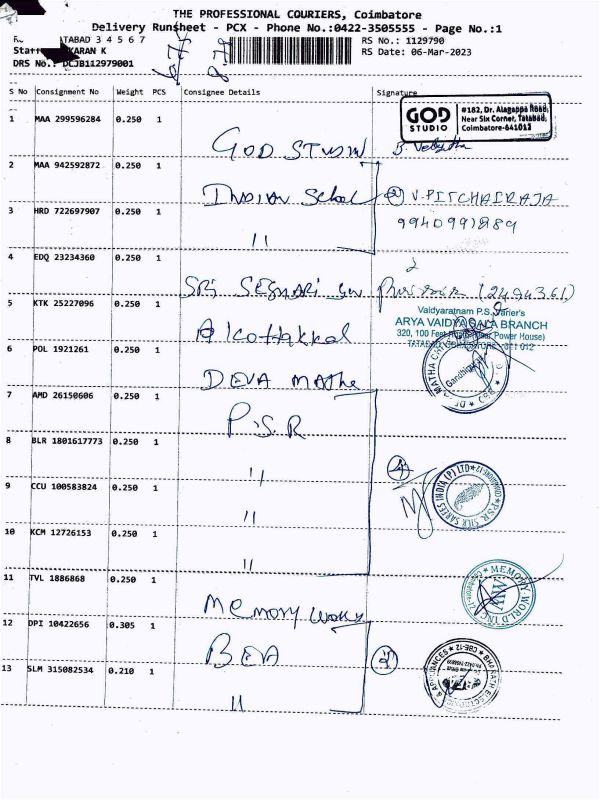 THE PROFESSIONAL COURIERS, Coimbatore
Delivery Runsheet - PCX - Phone No.:0422-3505555 - Page No.:1
TATABAD 3 4 5 6 7
RS No.: 1129790
KARAN K
RS Date: 06-Mar-2023
DRS No.: DCJB112979001
S No Consignment No Weight PCS Consignee Details Signature
GOD STUDIO
#182, Dr. Alagappa Road,
Near Six Corner, Tatabad,
Coimbatore-641012
1 MAA 299596284 0.250 1
GOD STUDIO
2 MAA 942592872 0.250 1
INDIAN School (2) V.PITCHAIRAJA
3 HRD 722697907 0.250 1
9940991889
11
4 EDQ 23234360 0.250 1
SRI (2494361)
Vaidyaratnam P.S. Varier's
5 KTK 25227096 0.250 1
ARYA VAIDYASALA BRANCH
A Kottakkal
320, 100 Feet Power House)
6 POL 1921261 0.250 1
DEVA MATHA
7 AMD 26150606 0.250 1
P.S.R
8 BLR 1801617773 0.250 1
11
(4)
PSR SILK SAREES INDIA (P) LTD COIMBATORE-12
9 CCU 100583824 0.250 1
11
10 KCM 12726153 0.250 1
11
11 TVL 1886868 0.250 1
MEMORY WORLD
MEMORY WORLD INC
12 DPI 10422656 0.305 1
BEA (2)
13 SLM 315082534 0.210 1
11
BHARATH ELECTRONICS & APPLIANCES CBE-12